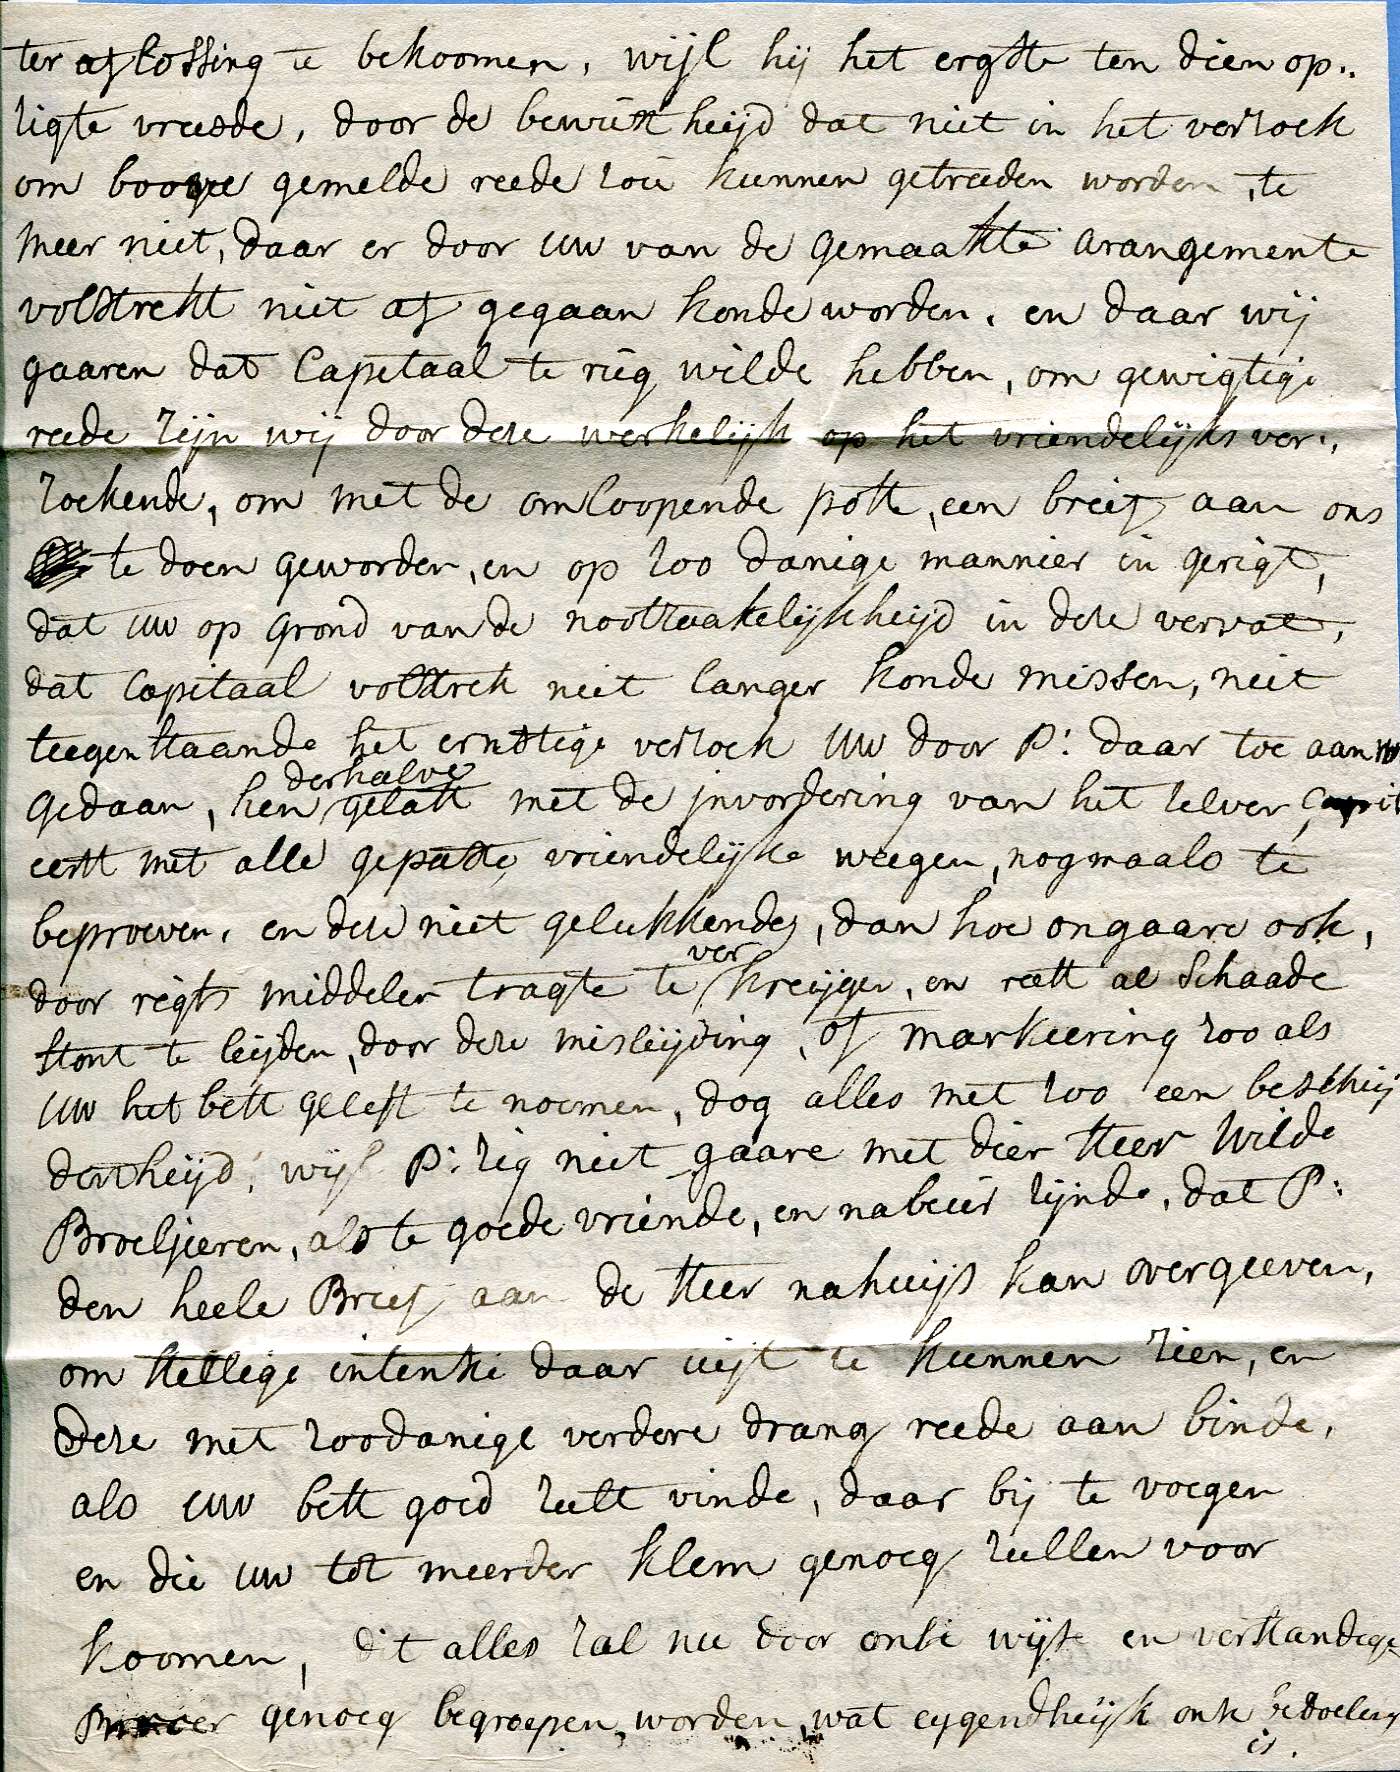 ter aflossing te bekoomen, wijl hij het ergste ten dien op„
zigte vreesde, door de bewust heijd dat niet in het verzoek
om boove gemelde reede zoú kunnen getreeden worden, te
meer niet, daar er door uw van de gemaakte arangemente
volstrekt niet af gegaan konde worden. en daar wij
gaaren dat Capetaal te rúg wilde hebben, om gewigtige
reede zijn wij door deze werkelijk op het vriendelijks ver„
zoekende, om met de omloopende post, een breif aan ons
te doen geworden, en op zoo danige mannier in gerigt,
dat uw op grond van de nootzaakelijkheijd in deze vervat,
dat Capitaal volstrek niet langer konde missen, niet
teegenstaande het ernstige verzoek uw door P: daar toe aan uw
gedaan, hem derhalve gelast met de invordering van het zelver Capit
eerst met alle gepaste vriendelijke weegen, nogmaals te
beproeven, en deze niet gelukkende, dan hoe ongaare ook,
door regts middelen tragte te ver kreijgen, en reett al Schaade
stont te leijden, door deze misleijding, of markeering zoo als
uw het best geleeft te noemen, dog alles met zoo een bescheij
dentheijd, wijl P: zig niet gaare met dien Heer wilde
Broeljeeren, als te goede vriende, en nabuúr zijnde, dat P:
den heele Brief aan de Heer nahuijs kan overgeeven,
om stellige intensie daar uijt te kunnen zien, en
Deze met zoodanige verdere drang reede aan binde,
als uw best goed zult vinde, daar bij te voegen
en die uw tot meerder klem genoeg zullen voor
koomen, dit alles zal nu door onse wijse en verstandige
genoeg begreepen worden, wat eygendheijk onse bedoeling
is.